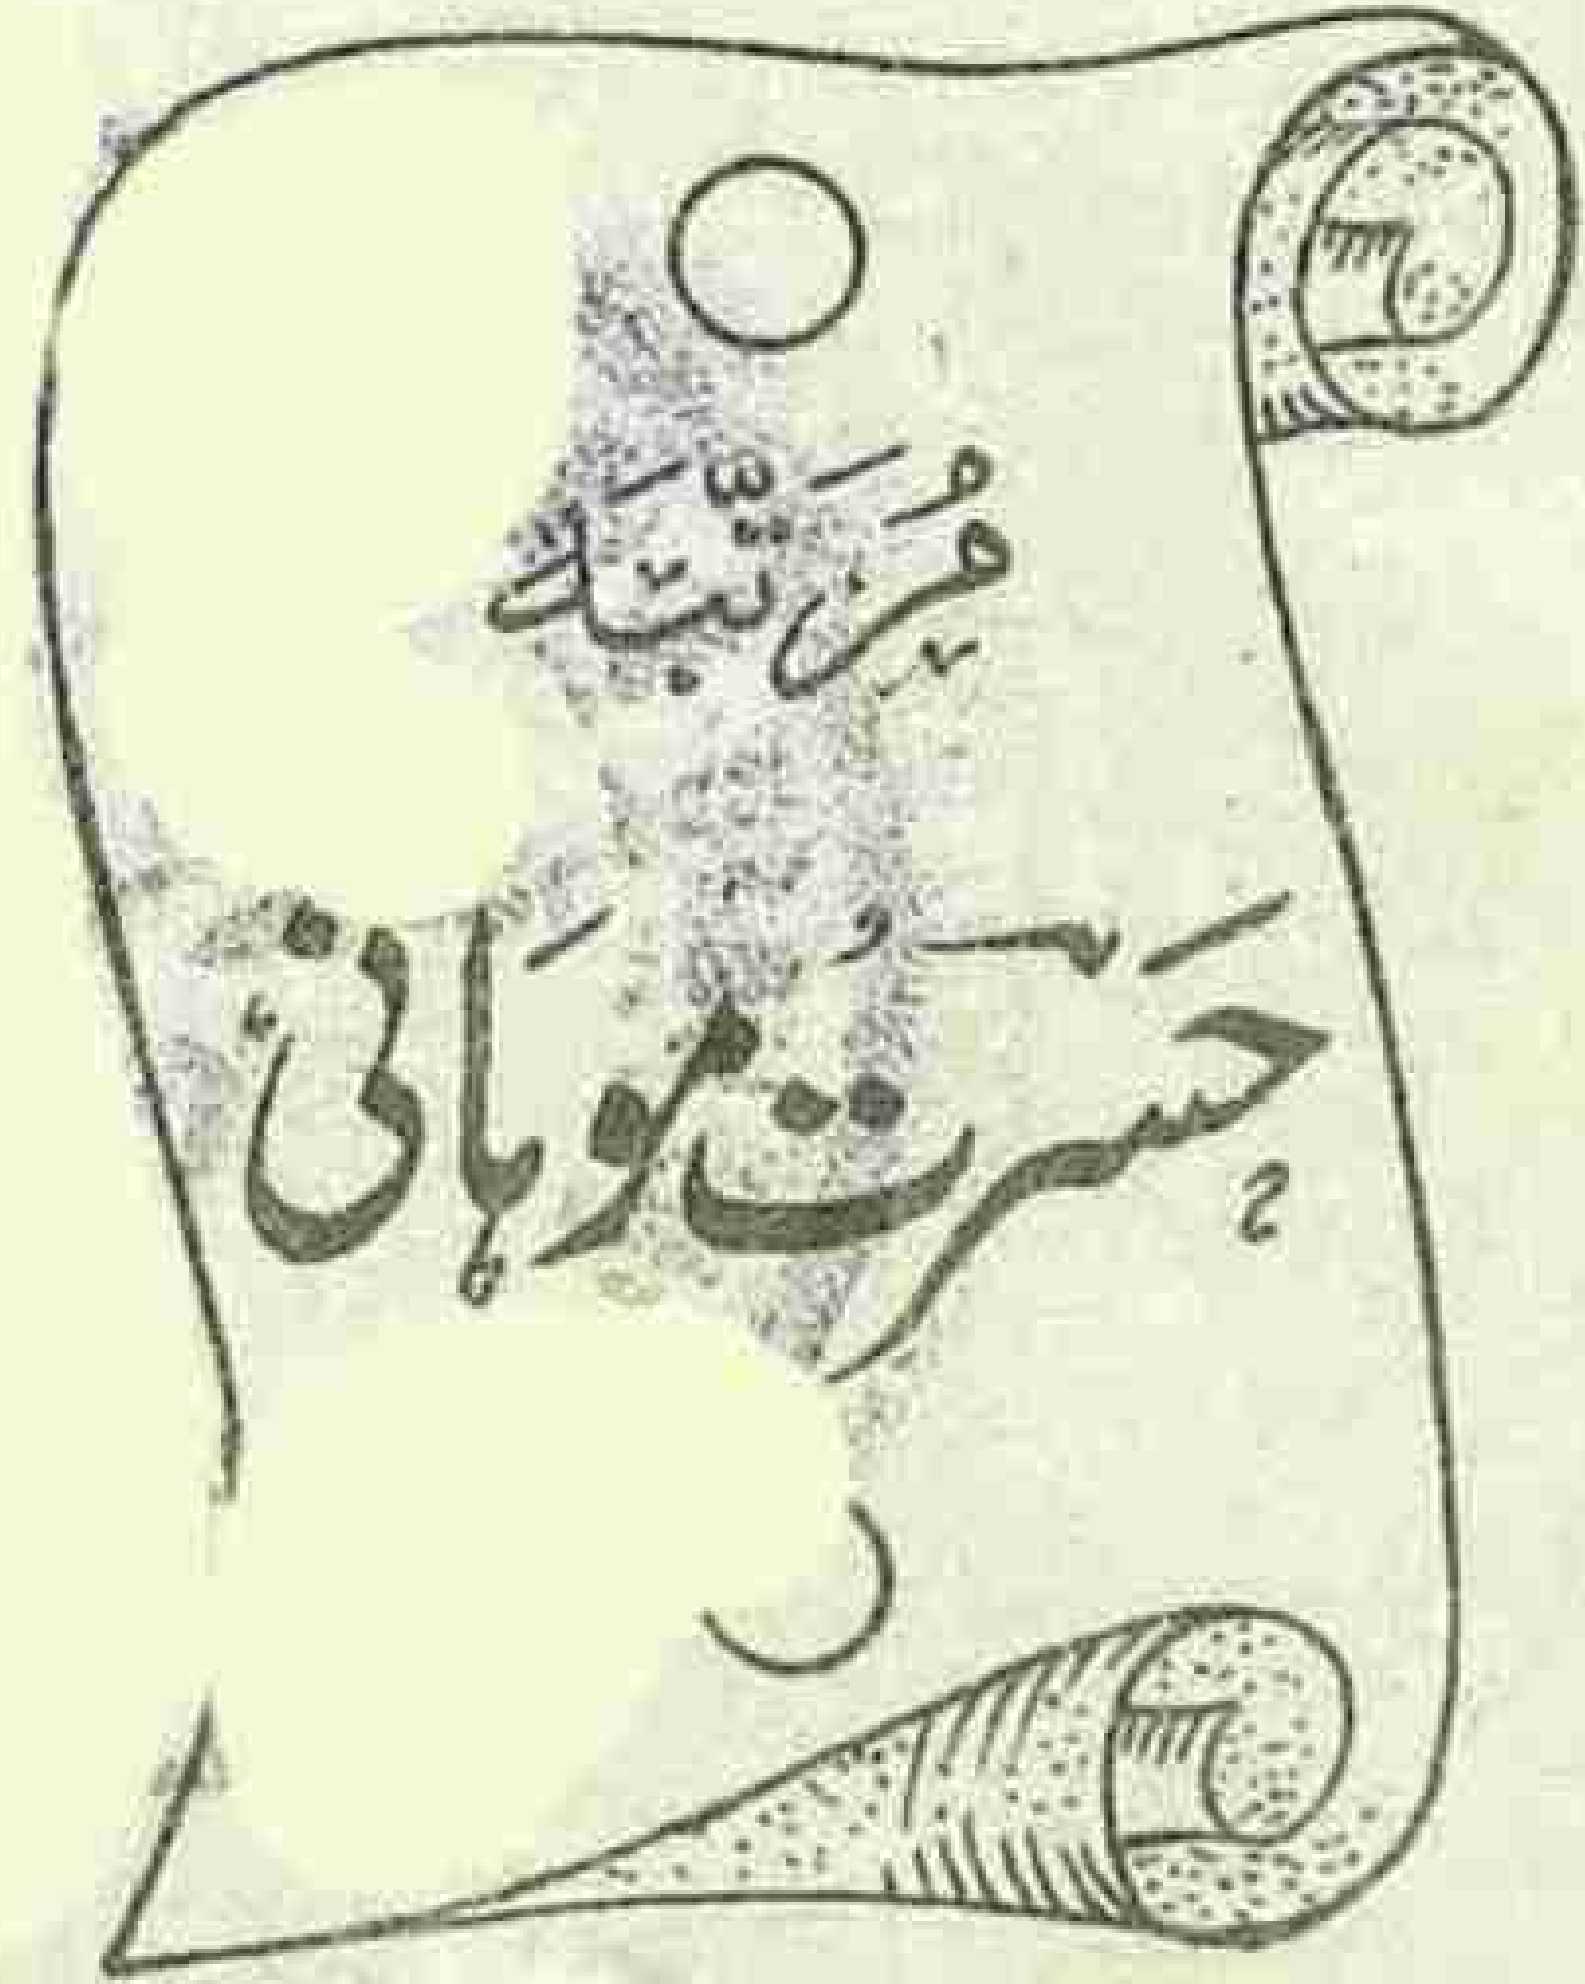 مُرَتّبَہ
حَسرت موہانی